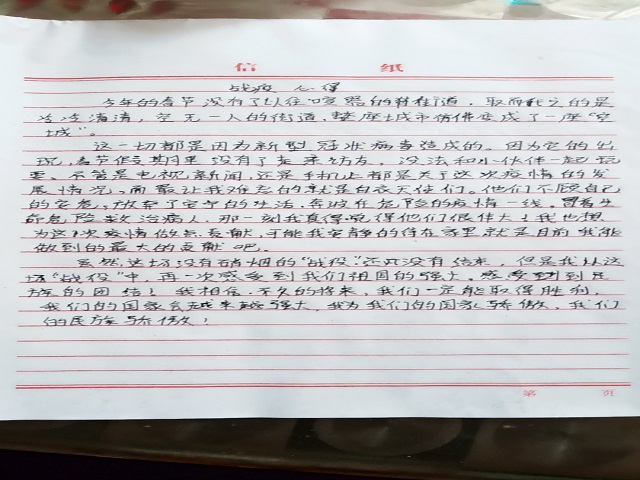 信 纸
战疫 心得
今年的春节没有了以往喧嚣的街道，取而代之的是
冷冷清清，空无一人的街道，整座城市仿佛变成了一座“空
城”。
这一切都是因为新型冠状病毒造成的。因为它的出
现，春节假期里没有了走亲访友，没法和小伙伴一起玩
耍、不管是电视新闻，还是手机上都是关于这次疫情的发
展情况，而最让我难忘的就是白衣天使们。他们不顾自己
的安危，放弃了安宁的生活，奔波在危险的疫情一线。冒着生
命危险救治病人，那一刻我真得觉得他们很伟大！我也想
为这次疫情做点贡献，可能我安静的待在家里就是目前我能
做到的最大的贡献吧。
虽然这场没有硝烟的“战役”还没有结束，但是我从这
场“战役”中，再一次感受到我们祖国的强大，感受到民
族的团结！我相信，不久的将来，我们一定能取得胜利，
我们的国家会越来越强大，我为我们的国家骄傲，我们
的民族骄傲！
第 页